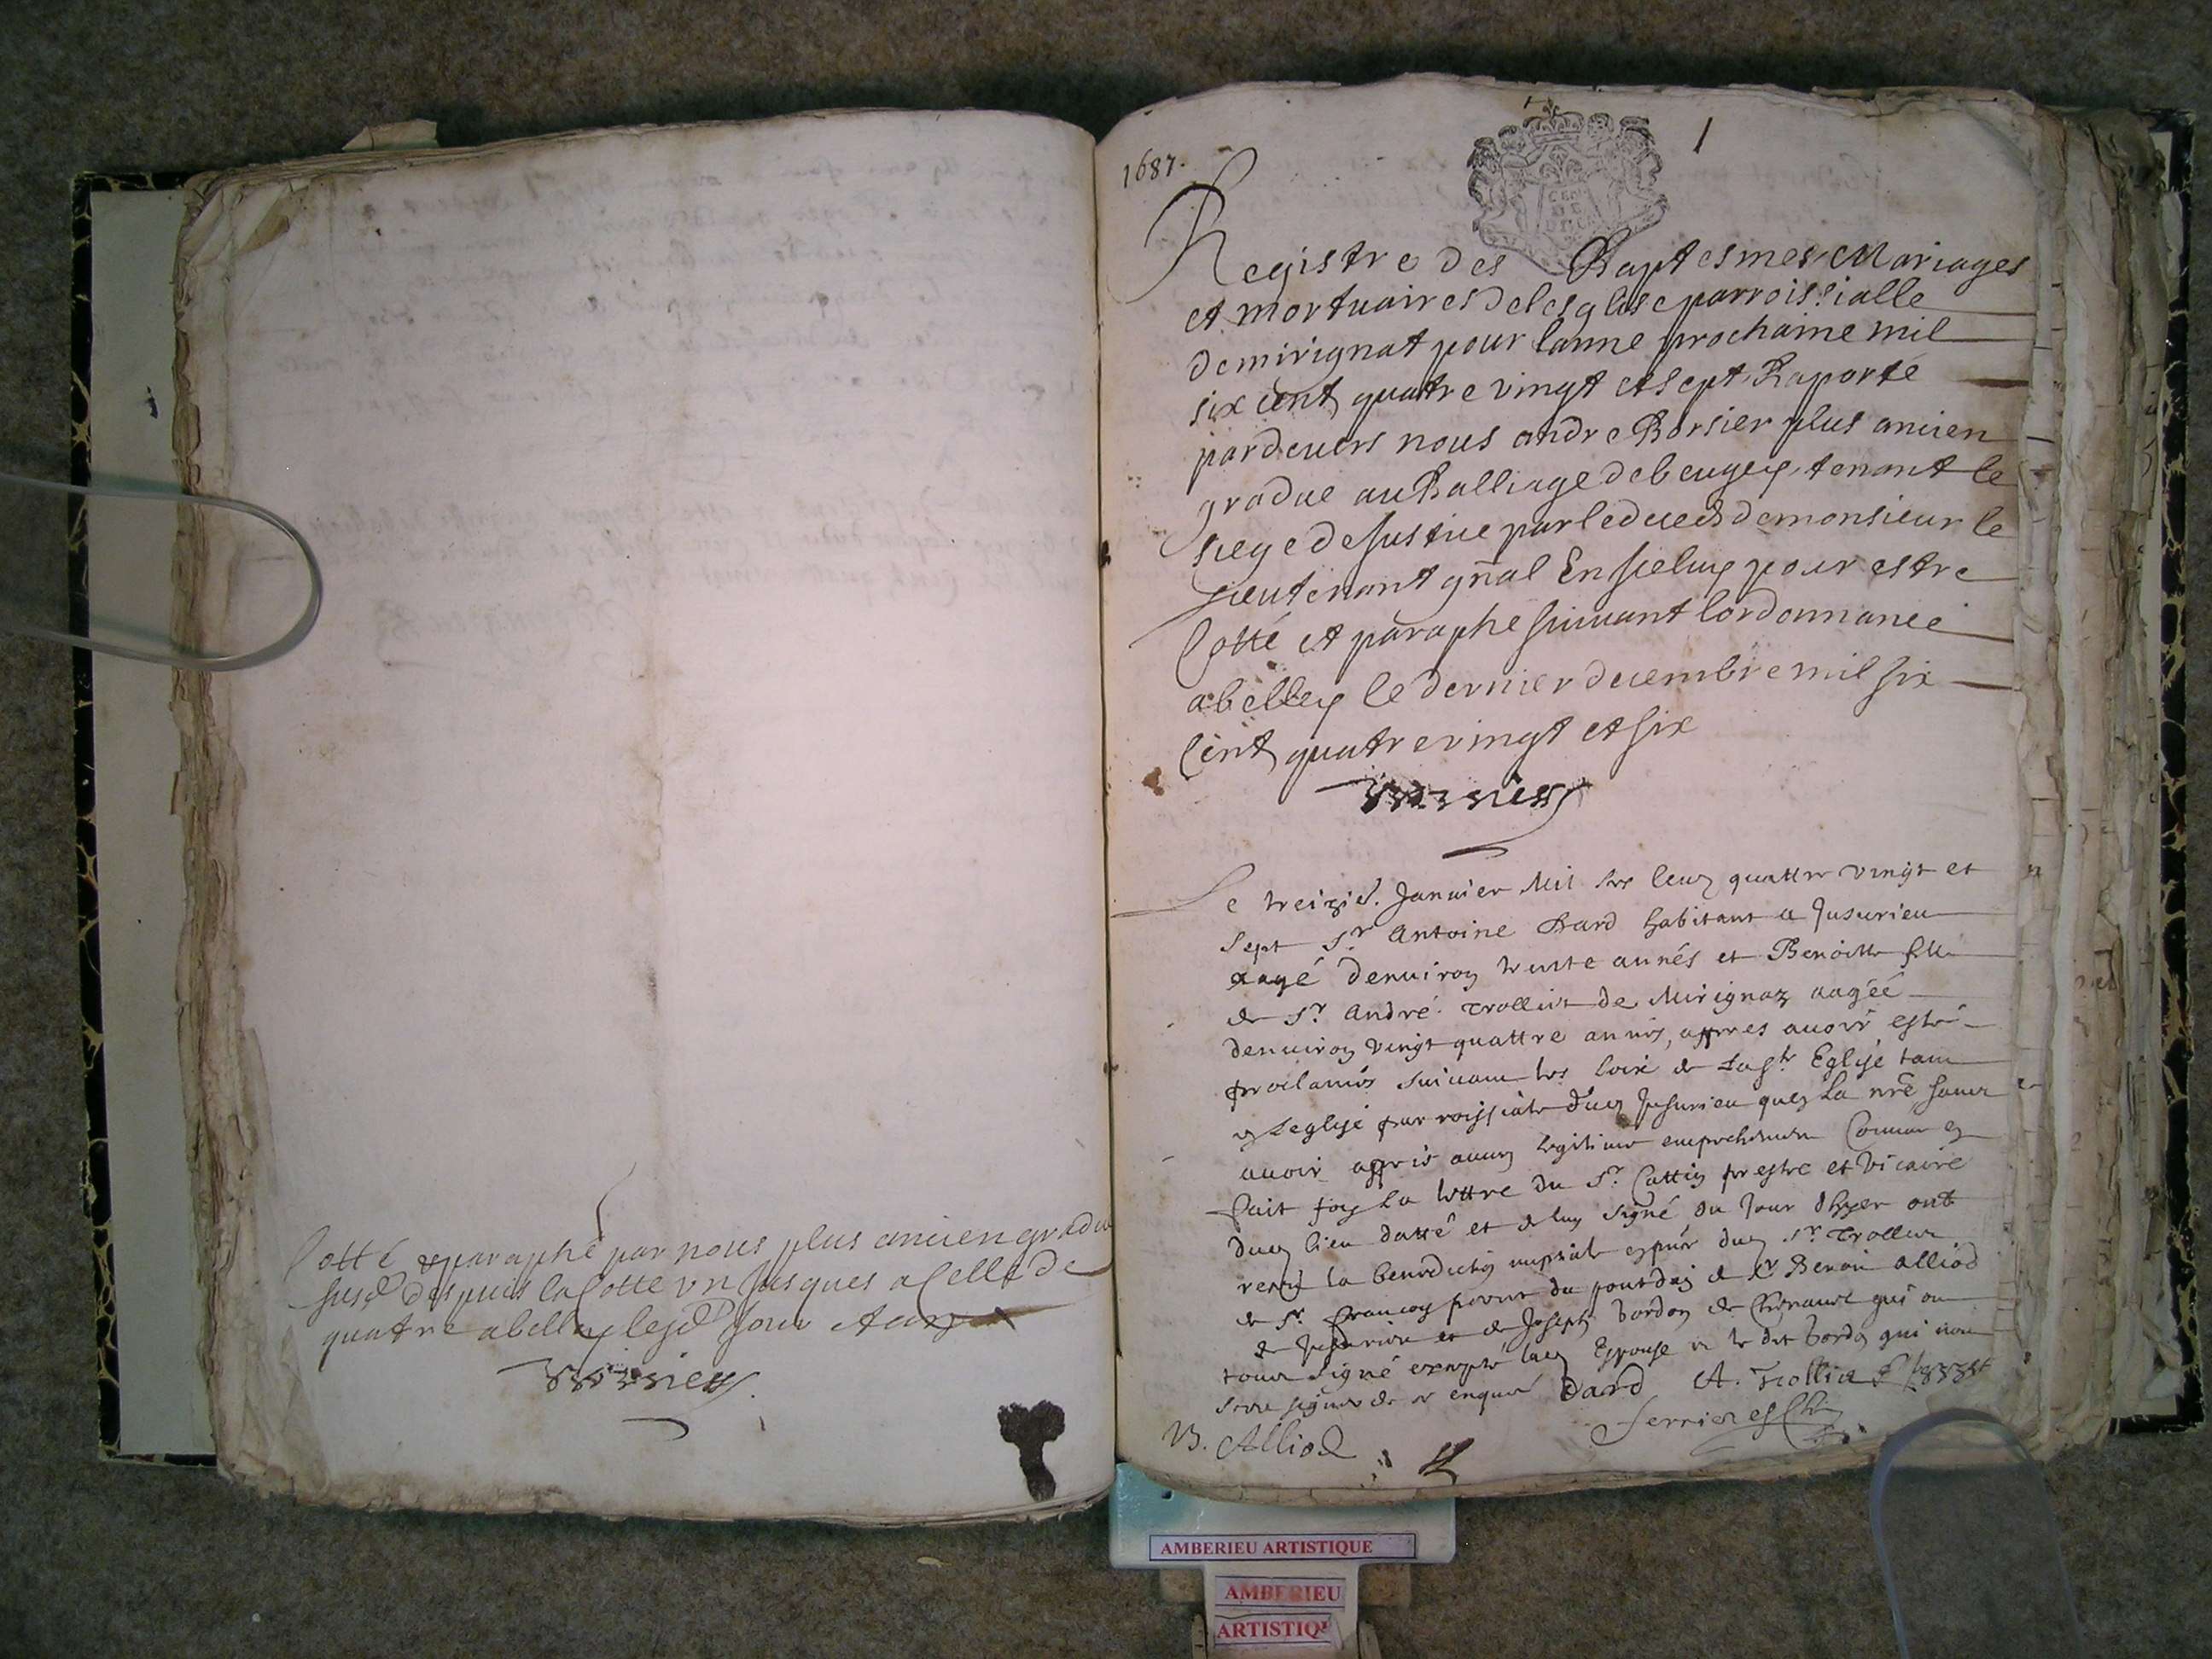 Cotté & paraphé par nous plus ancien gradué
susd despuis la Cotte un jusques a celle de
quatre a belley lesd jour et an
1687.
1
Registre des Baptesmes Mariages
et mortuaires de lesglise parroissialle
de mirignat pour lanne prochaine mil
six cent quatre vingt et sept Raporté
pardevers nous andre Borsier plus ancien
gradué au Balliage de beugey tenant le
siege de Justice par le deceds de monsieur le
lieutenant gñal En iceluy pour estre
Cotté et paraphe suivant lordonnance
a belley le dernier decembre mil six
Cent quatre vingt et six
Le treizie. Janvier Mil six Cens quattre vingt et
Sept Sr Antoine Dard habitant a Jusurieu
aagé denviron trente annés et Benoitte fille
de Sr André Trollier de Mirignaz aagéé
denviron vingt quattre annés, appres avoir esté
proclamés suivant les loix de La Ste Eglise tant
en Leglise parroissiale dud Jusurieu quen La nre sans
avoir appris aucun legitime empechement Comme en
fait foy La lettre du Sr. Cattin prestre et Vicaire
dud lieu datté et de luy signé du Jour dhyer ont
receu la benediction nuptiale en pñce dud Sr Trollier
de Sr francoy de Sr Benoit alliod
de Jusurieu et de Joseph bordon de qui ont
tous signé excepté lad Espouse et le dit bordon qui non
sceu signer de ce enquis Dard A. Trollier
B. Alliod
AMBERIEU ARTISTIQUE
AMBERIEU
ARTISTIQU